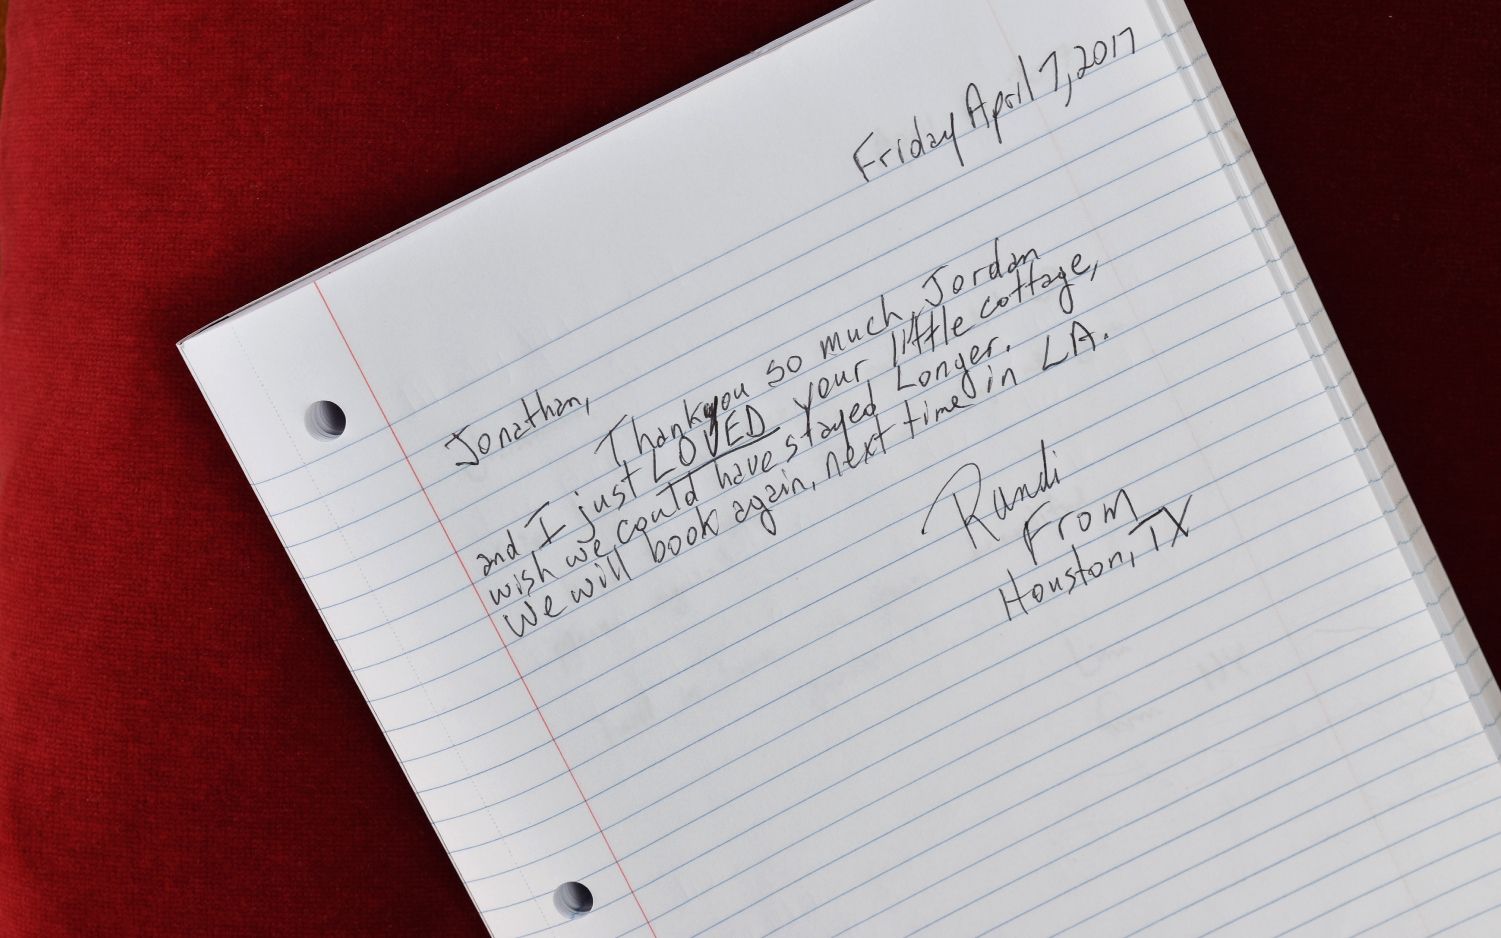 Friday April 7, 2017
Jonathan,
Thankyou so much, Jordan
and I just LOVED your little cottage,
wish we could have stayed Longer.
We will book again, next time in LA.
Randi
From
Houston, TX